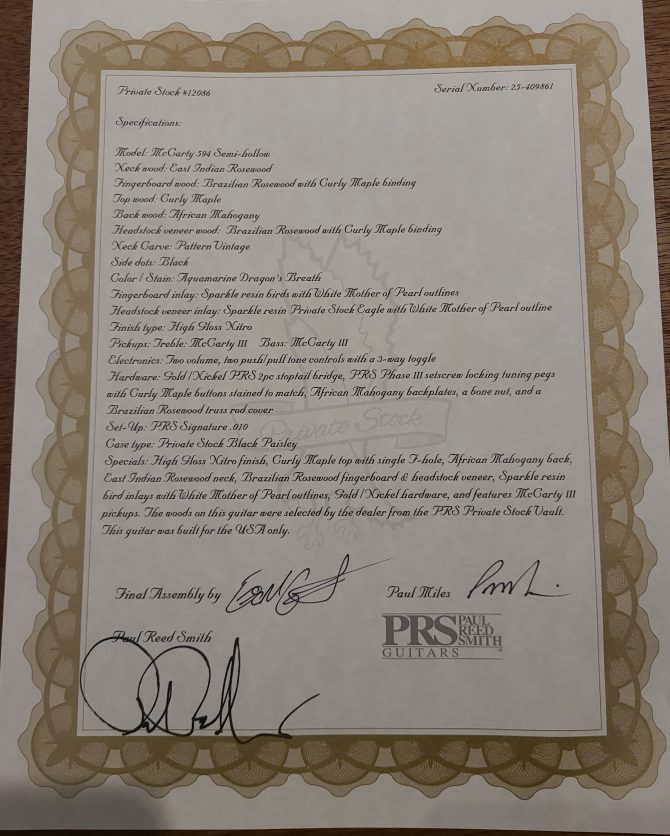 Private Stock #12086
Serial Number: 23-409861
Specifications:
Model: McCarty 594 Semi-hollow
Neck wood: East Indian Rosewood
Fingerboard wood: Brazilian Rosewood with Curly Maple binding
Top wood: Curly Maple
Back wood: African Mahogany
Headstock veneer wood: Brazilian Rosewood with Curly Maple binding
Neck Carve: Pattern Vintage
Side dots: Black
Color / Stain: Aquamarine Dragon's Breath
Fingerboard inlay: Sparkle resin birds with White Mother of Pearl outlines
Headstock veneer inlay: Sparkle resin Private Stock Eagle with White Mother of Pearl outline
Finish type: High Gloss Nitro
Pickups: Treble: McCarty III Bass: McCarty III
Electronics: Two volume, two push/pull tone controls with a 3-way toggle
Hardware: Gold / Nickel PRS 2pc stoptail bridge, PRS Phase III setscrew locking tuning pegs
with Curly Maple buttons stained to match, African Mahogany backplates, a bone nut, and a
Brazilian Rosewood truss rod cover
Private Stock
Set-Up: PRS Signature .010
Case type: Private Stock Black Paisley
Specials: High Gloss Nitro finish, Curly Maple top with single F-hole, African Mahogany back,
East Indian Rosewood neck, Brazilian Rosewood fingerboard & headstock veneer, Sparkle resin
bird inlays with White Mother of Pearl outlines, Gold / Nickel hardware, and features McCarty III
pickups. The woods on this guitar were selected by the dealer from the PRS Private Stock Vault.
This guitar was built for the USA only.
Final Assembly by
Paul Miles
Paul Reed Smith
PRS PAUL REED SMITH
GUITARS